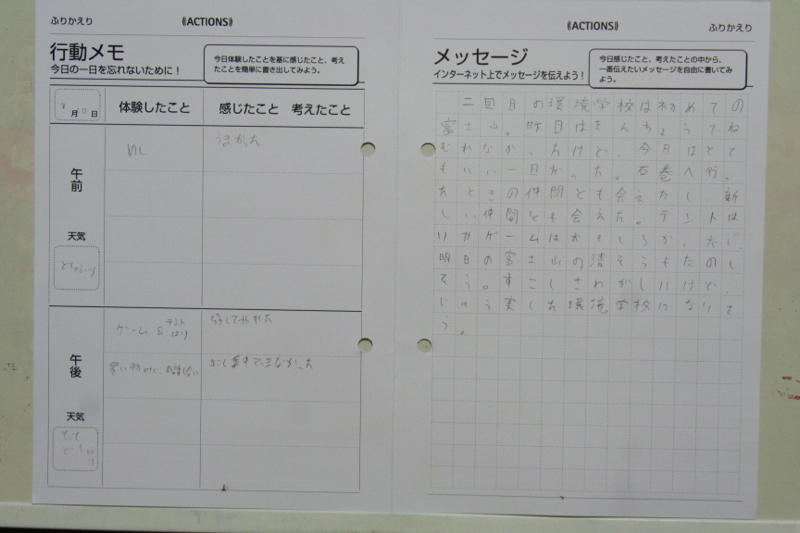 ふりかえり
《ACTIONS》
行動メモ
今日の一日を忘れないために！
今日体験したことを基に感じたこと、考え
たことを簡単に書き出してみよう。
月 日
体験したこと
感じたこと 考えたこと
午前
めし
うまかった
天気
午後
ゲーム & テントはり
天気
《ACTIONS》
ふりかえり
メッセージ
インターネット上でメッセージを伝えよう！
今日感じたこと、考えたことの中から、
一番伝えたいメッセージを自由に書いてみ
よう。
二回目の環境学校は初めての
富士山。昨日はきんちょうでね
むれなか、たけど、今日はとて
もいい一日だった。石巻へ行っ
たときの仲間とも会えたし、新
しい仲間とも会えた。テントは
りがゲームはおもしろかった
明日の富士山の清そうもたのし
そう。すこしさわがしいけど、
じゅう実した環境学校になりそ
う。